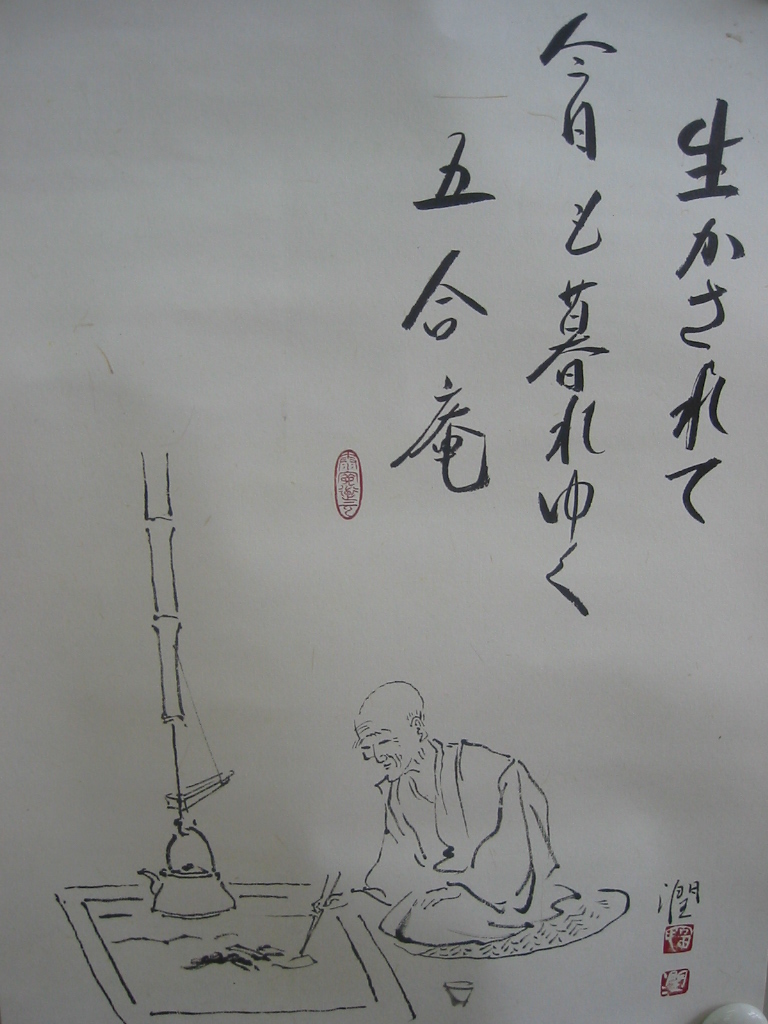 生かされて
今日も暮れゆく
五合庵
潤